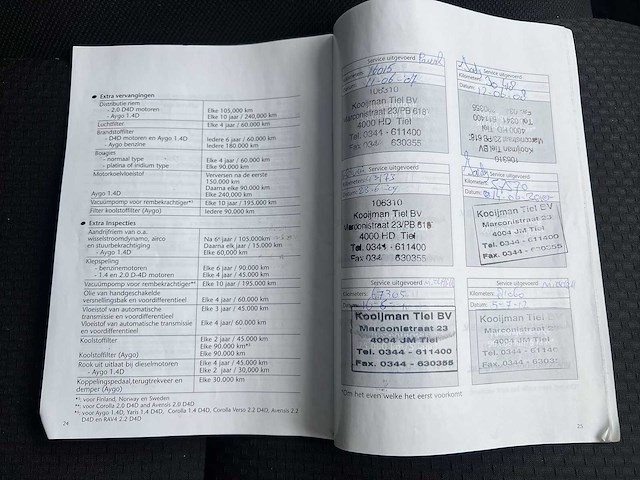 ● Extra vervangingen
Distributie riem
- 2.0 D4D motoren Elke 105,000 km
- Aygo 1.4D Elke 10 jaar / 240,000 km
Luchtfilter Elke 4 jaar / 60.000 km
Brandstoffilter
- D4D motoren en Aygo 1.4D Iedere 6 jaar / 60.000 km
- Aygo benzine Iedere 180.000 km
Bougies
- normaal type Elke 4 jaar / 60.000 km
- platina of iridium type Elke 90.000 km
Motorkoelvloeistof Verversen na de eerste
150.000 km
Daarna elke 90.000 km
Aygo 1.4D Elke 240,000 km
Vacuümpomp voor rembekrachtiger*² Elke 10 jaar / 195.000 km
Filter koolstoffilter (Aygo) Iedere 90.000 km
● Extra Inspecties
Aandrijfriem van o.a.
wisselstroomdynamo, airco Na 6e jaar / 105.000km
en stuurbekrachtiging Daarna elk jaar / 15.000 km
- Aygo 1.4D Elke 60,000 km
Klepspeling
- benzinemotoren Elke 6 jaar / 90.000 km
- 1.4 en 2.0 D-4D motoren Elke 4 jaar / 45.000 km
Vacuümpomp voor rembekrachtiger** Elke 10 jaar / 195.000 km
Olie van handgeschakelde
versnellingsbak en voordifferentieel Elke 4 jaar / 60.000 km
Vloeistof van automatische Elke 3 jaar / 45.000 km
transmissie en voordifferentieel
Vloeistof van automatische transmissie Elke 4 jaar/ 60.000 km
en voordifferentieel
Koolstoffilter Elke 2 jaar / 45.000 km
Elke 90.000 km*¹
Koolstoffilter (Aygo) Elke 90.000 km
Rook uit uitlaat bij dieselmotoren Elke 4 jaar / 45.000 km
- Aygo 1.4D Elke 2 jaar / 30,000 km
Koppelingspedaal,terugtrekveer en Elke 30.000 km
demper (Aygo)
*¹: voor Finland, Norway en Sweden
**: voor Corolla 2.0 D4D and Avensis 2.0 D4D
*³: voor Aygo 1.4D, Yaris 1.4 D4D, Corolla 1.4 D4D, Corolla Verso 2.2 D4D, Avensis 2.2
D4D en RAV4 2.2 D4D
24
Service uitgevoerd:
11-06-07
106310
Kooijman Tiel BV
Marconistraat 23/PB 618
4000 HD Tiel
Tel. 0344 - 611400
Fax. 0344 - 630355
Service uitgevoerd:
Kilometers:
Datum:
106310
Kooijman Tiel BV
Marconistraat 23/PB 618
4000 HD Tiel
Tel. 0344 - 611400
Fax. 0344 - 630355
Service uitgevoerd:
106310
Kooijman Tiel BV
Marconistraat 23/PB 618
4000 HD Tiel
Tel. 0344 - 611400
Fax. 0344 - 630355
Service uitgevoerd:
Kilometers:
Datum:
Kooijman Tiel BV
Marconistraat 23
4004 JM Tiel
Tel. 0344 - 611400
Fax. 0344 - 630355
Service uitgevoerd
Kilometers:
Kooijman Tiel BV
Marconistraat 23
4004 JM Tiel
Tel. 0344 - 611400
Fax. 0344 - 630355
Service uitgevoerd
Kilometers:
Datum:
Kooijman Tiel BV
Marconistraat 23
4004 JM Tiel
Tel. 0344 - 611400
Fax. 0344 - 630355
*Om het even welke het eerst voorkomt
25